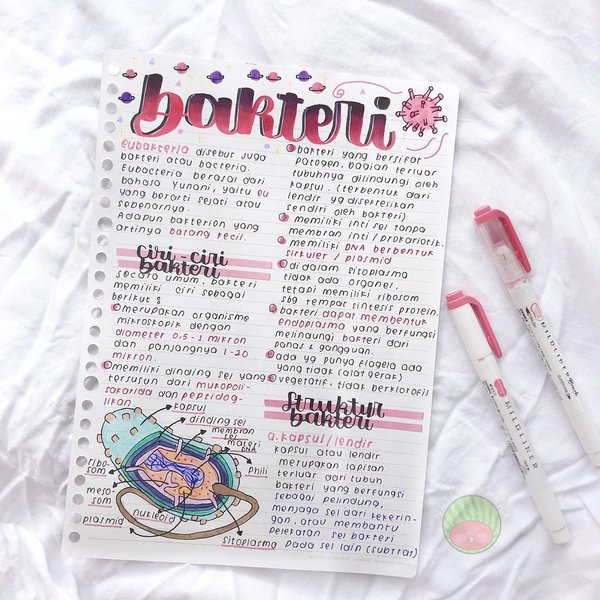 bakteri
Eubakteria disebut juga
bakteri atau bacteria.
Eubacteria berasal dari
bahasa Yunani, yaitu eu
yang berarti sejati atau
sebenarnya.
Adapun bakterion yang
artinya barang kecil.
ciri-ciri
bakteri
secara umum, bakteri
memiliki ciri sebagai
berikut :
merupakan organisme
mikroskopik dengan
diameter 0,5-1 mikron
dan panjangnya 1-20
mikron.
memiliki dinding sel yang
tersusun dari mukopoli-
sakarida dan peptidog-
likan.
kapsul
dinding sel
membran
sel
materi
DNA
phili
ribo-
som
meso-
som
plasmid
nukleoid
sitoplasma
bakteri yang bersifat
patogen, bagian terluar
tubuhnya dilindungi oleh
kapsul. (terbentuk dari
lendir yg disekresikan
sendiri oleh bakteri)
memiliki inti sel tanpa
membran inti / prokariotik.
memiliki DNA berbentuk
sirkuler / plasmid
di dalam sitoplasma
tidak ada organel,
tetapi memiliki ribosom
sbg tempat sintesis protein.
bakteri dapat membentuk
endoplasma yang berfungsi
melindungi bakteri dari
panas & gangguan.
ada yg punya flagela ada
yang tidak (alat gerak)
vegetatif, tidak berklorofil
struktur
bakteri
a. kapsul / lendir
kapsul atau lendir
merupakan lapisan
terluar dari tubuh
bakteri yang berfungsi
sebagai pelindung,
menjaga sel dari kekerin-
gan, atau membantu
pelekatan sel bakteri
pada sel lain (subtrat)
MILDLINER
MILDLINER Brush